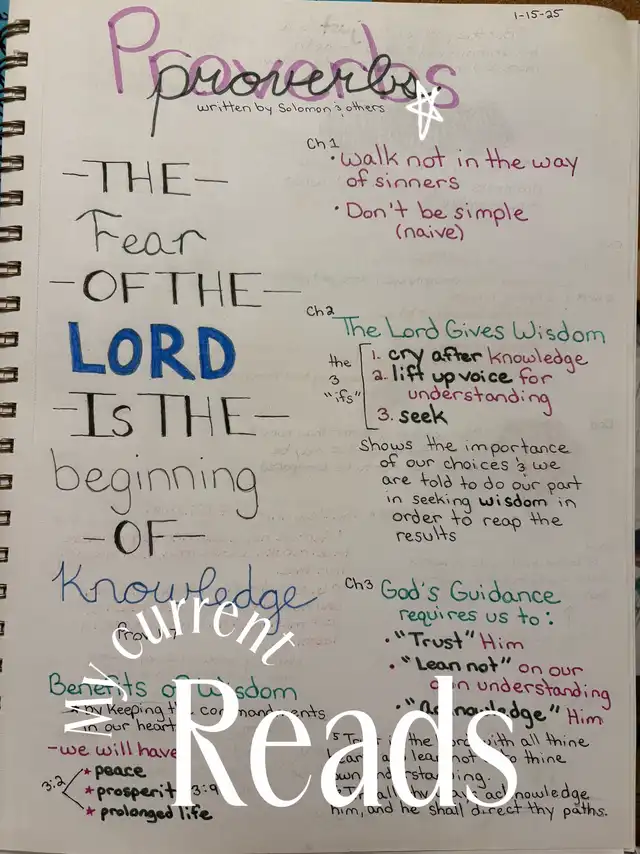 1-15-25
Proverbs
proverbs
written by Solomon & others
-THE-
Fear
-OF THE-
LORD
-Is THE-
beginning
-OF-
Knowledge
Prov 1:7
Ch 1
• Walk not in the way
of sinners
• Don't be simple
(naive)
Ch2
The Lord Gives Wisdom
the
3
"ifs"
1. cry after knowledge
2. lift up voice for
understanding
3. seek
shows the importance
of our choices & we
are told to do our part
in seeking wisdom in
order to reap the
results
Ch3
God's Guidance
requires us to:
• "Trust" Him
• "Lean not" on our
own understanding
• "Acknowledge" Him
5 Trust in the Lord with all thine
heart and lean not unto thine
own understanding.
all thy ways acknowledge
him, and he shall direct thy paths.
Benefits of Wisdom
by Keeping the commandments
in our heart
-we will have
3:2
* peace
* prosperity 3:9
* prolonged life
My current
Reads